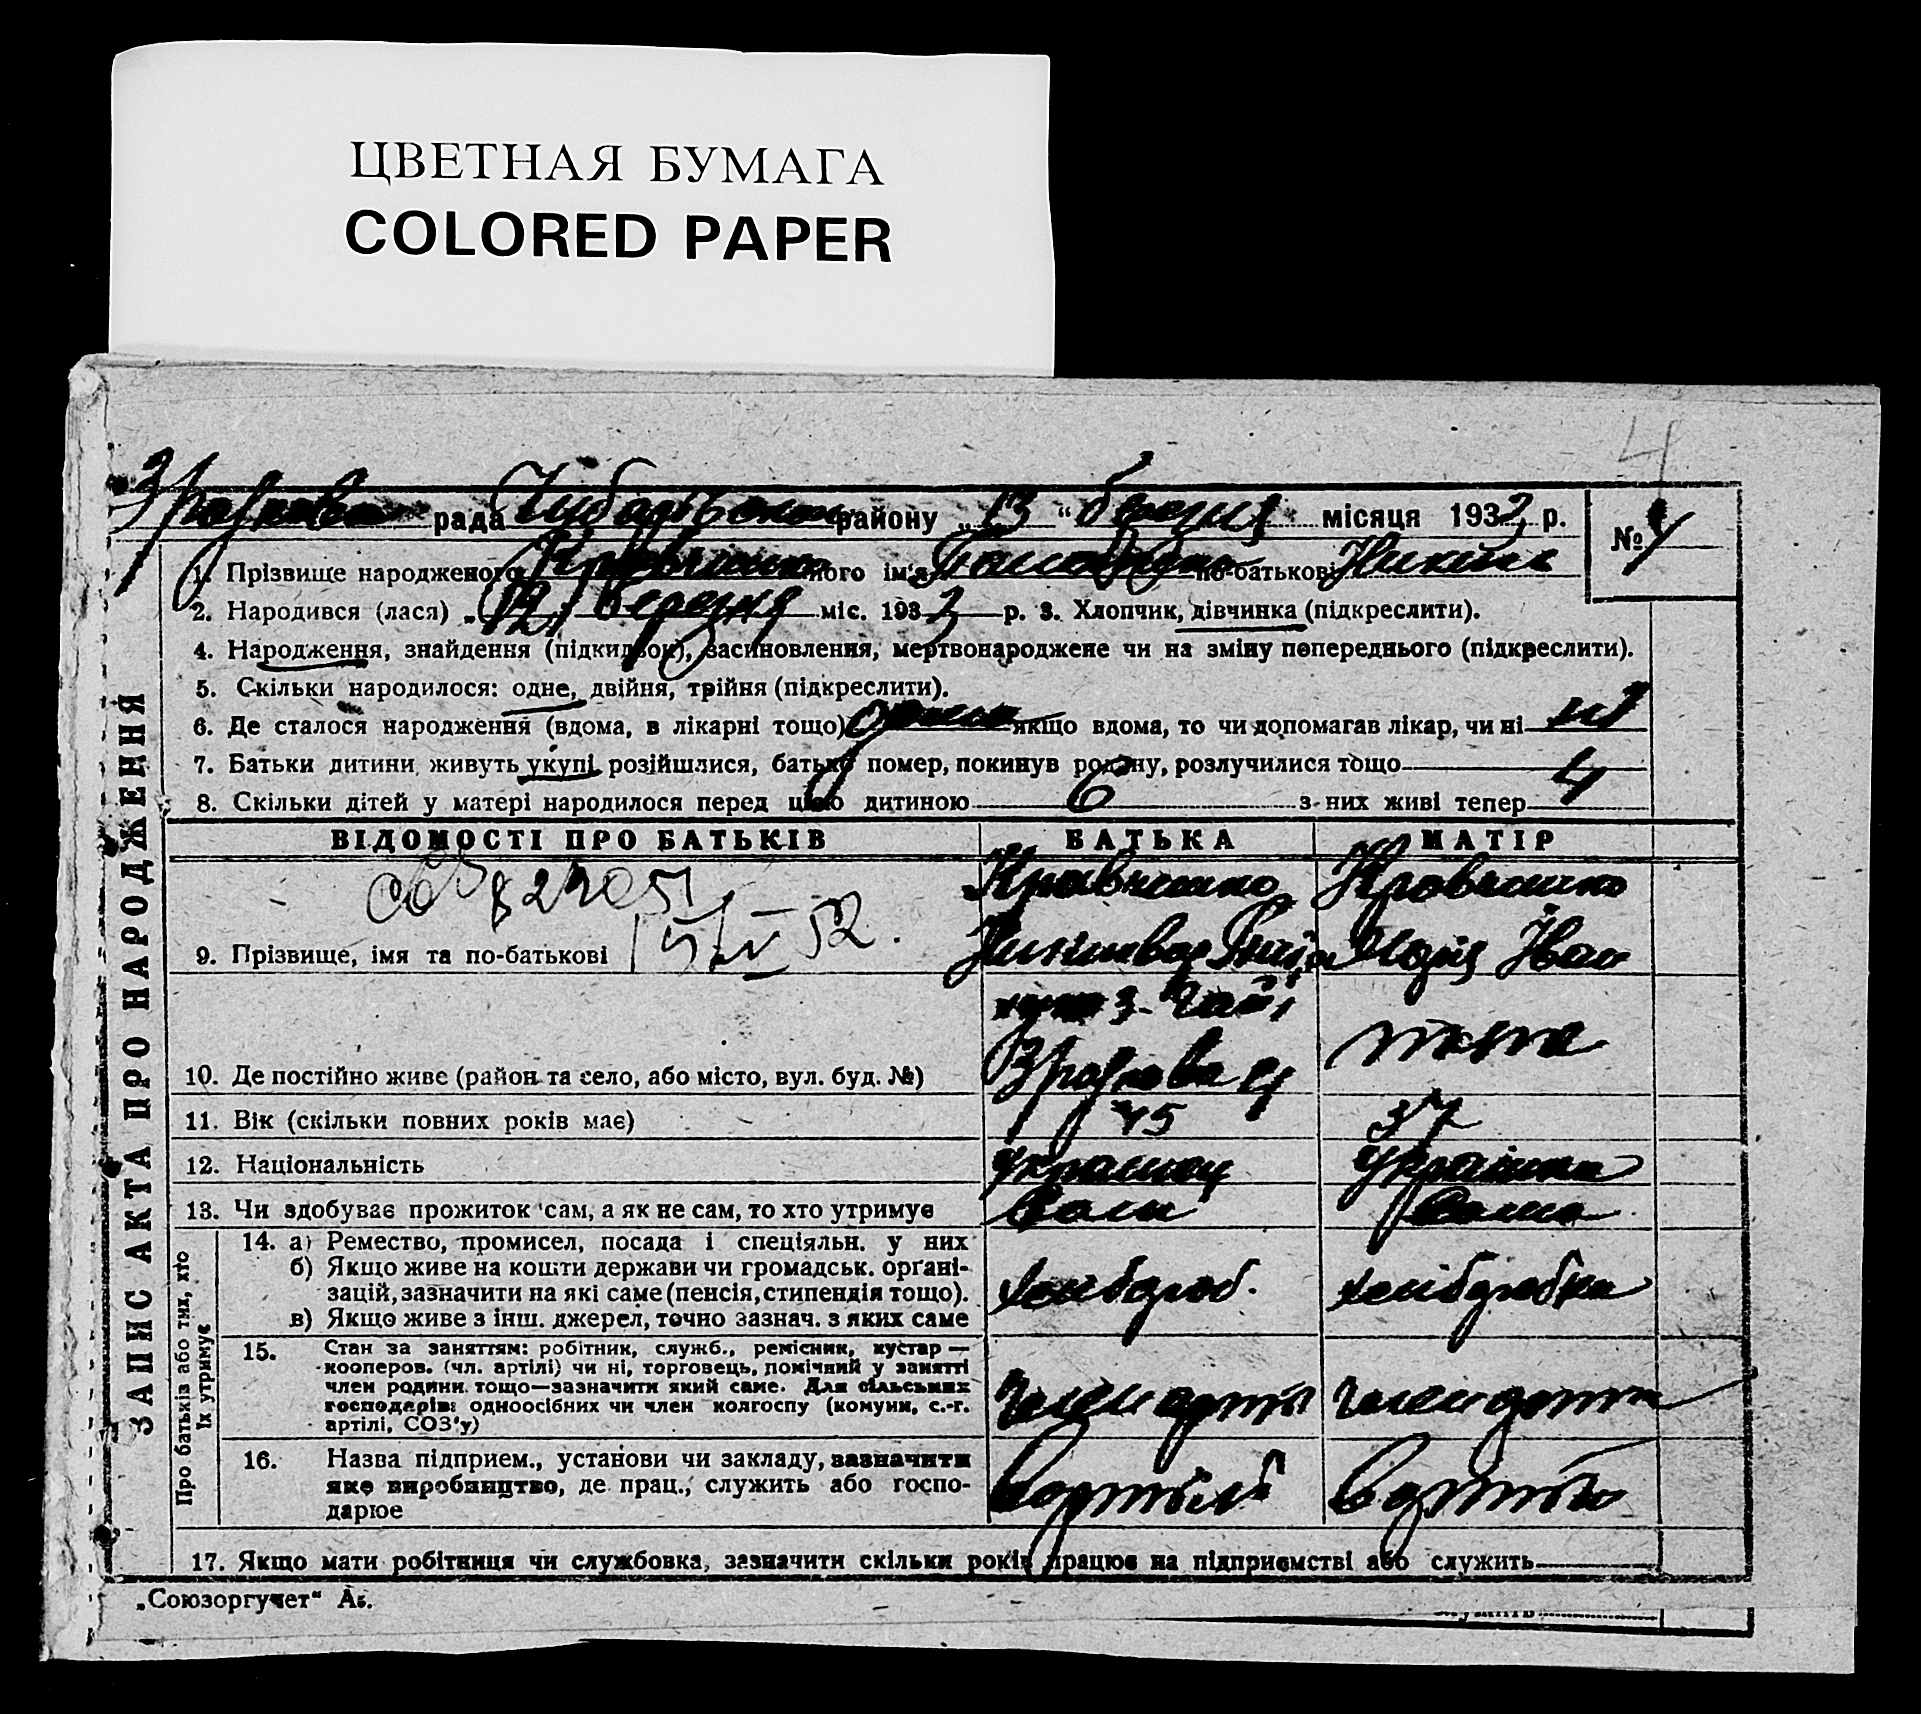 ЦВЕТНАЯ БУМАГА
COLORED PAPER
4
рада району „13“ березня місяця 1932 р.
№ 4
1. Прізвище народженого Кравченко його ім'я по-батькові
2. Народився (лася) „12“ березня міс. 1932 р. 3. Хлопчик, дівчинка (підкреслити).
4. Народження, знайдення (підкидьок), засиновлення, мертвонароджене чи на зміну попереднього (підкреслити).
5. Скільки народилося: одне, двійня, трійня (підкреслити).
6. Де сталося народження (вдома, в лікарні тощо) дома якщо вдома, то чи допомагав лікар, чи ні ні
7. Батьки дитини живуть укупі, розійшлися, батько помер, покинув родину, розлучилися тощо
8. Скільки дітей у матері народилося перед цією дитиною 6 з них живі тепер 4
ЗАПИС АКТА ПРО НАРОДЖЕННЯ
ВІДОМОСТІ ПРО БАТЬКІВ БАТЬКА МАТІР
Кравченко Кравченко
9. Прізвище, імя та по-батькові
10. Де постійно живе (район та село, або місто, вул. буд. №)
11. Вік (скільки повних років має) 45 37
12. Національність українец українка
13. Чи здобуває прожиток сам, а як не сам, то хто утримує сам сама
Про батьків або тих, хто їх утримує
14. а) Ремество, промисел, посада і спеціяльн. у них
б) Якщо живе на кошти держави чи громадськ. органі-
зацій, зазначити на які саме (пенсія, стипендія тощо).
в) Якщо живе з інш. джерел, точно зазнач. з яких саме
хлібороб. хліборобка
15. Стан за заняттям: робітник, служб., ремісник, кустар —
кооперов. (чл. артілі) чи ні, торговець, помічний у занятті
член родини тощо—зазначити який саме. Для сільських
господарів: одноосібних чи член колгоспу (комуни, с.-г.
артілі, СОЗ'у)
член артілі член артілі
16. Назва підприєм., установи чи закладу, зазначити
яке виробництво, де прац., служить або госпо-
дарює
17. Якщо мати робітниця чи службовка, зазначити скільки років працює на підприємстві або служить
„Союзоргучет“